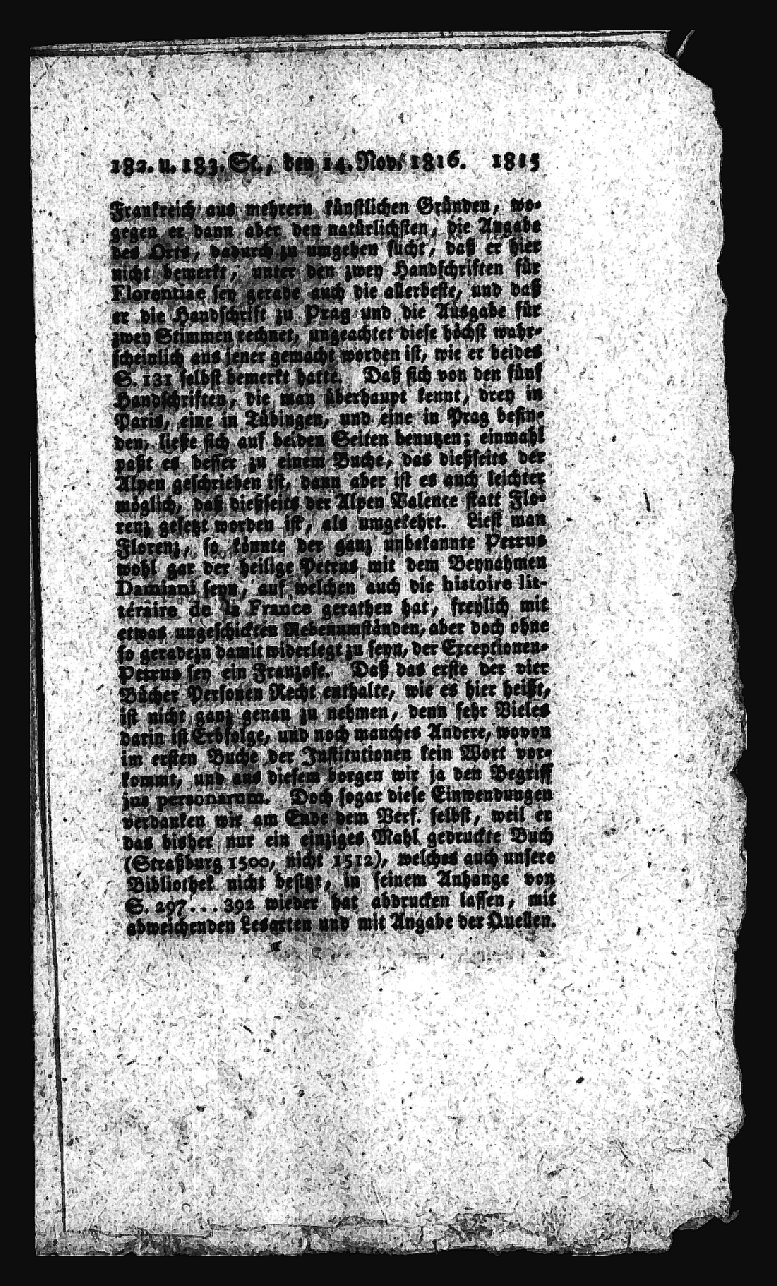 182. u. 183. St., den 14. Nov. 1816. 1815
Frankreich aus mehrern künstlichen Gründen, wo-
gegen er dann aber den natürlichsten, die Angabe
des Orts, dadurch zu umgehen sucht, daß er hier
nicht bemerkt, unter den zwey Handschriften für
Florentiae sey gerade auch die allerbeste, und daß
er die Handschrift zu Prag und die Ausgabe für
zwey Stimmen rechnet, ungeachtet diese höchst wahr-
scheinlich aus jener gemacht worden ist, wie er beides
S. 131 selbst bemerkt hatte. Daß sich von den fünf
Handschriften, die man überhaupt kennt, drey in
Paris, eine in Tübingen, und eine in Prag befin-
den, ließe sich auf beiden Seiten benutzen; einmahl
paßt es besser zu einem Buche, das dießseits der
Alpen geschrieben ist, dann aber ist es auch leichter
möglich, daß dießseits der Alpen Valence statt Flo-
renz gesetzt worden ist, als umgekehrt. Liest man
Florenz, so könnte der ganz unbekannte Petrus
wohl gar der heilige Petrus mit dem Beynahmen
Damiani seyn, auf welchen auch die histoire lit-
téraire de la France gerathen hat, freylich mit
etwas ungeschickten Nebenumständen, aber doch ohne
so geradezu damit widerlegt zu seyn, der Exceptionen-
Petrus sey ein Franzose. Daß das erste der vier
Bücher Personen Recht enthalte, wie es hier heißt,
ist nicht ganz genau zu nehmen, denn sehr Vieles
darin ist Erbfolge, und noch manches Andere, wovon
im ersten Buche der Institutionen kein Wort vor-
kommt, und aus diesem borgen wir ja den Begriff
jus personarum. Doch sogar diese Einwendungen
verdanken wir am Ende dem Verf. selbst, weil er
das bisher nur ein einziges Mahl gedruckte Buch
(Straßburg 1500, nicht 1512), welches auch unsere
Bibliothek nicht besitzt, in seinem Anhange von
S. 297...392 wieder hat abdrucken lassen, mit
abweichenden Lesarten und mit Angabe der Quellen.